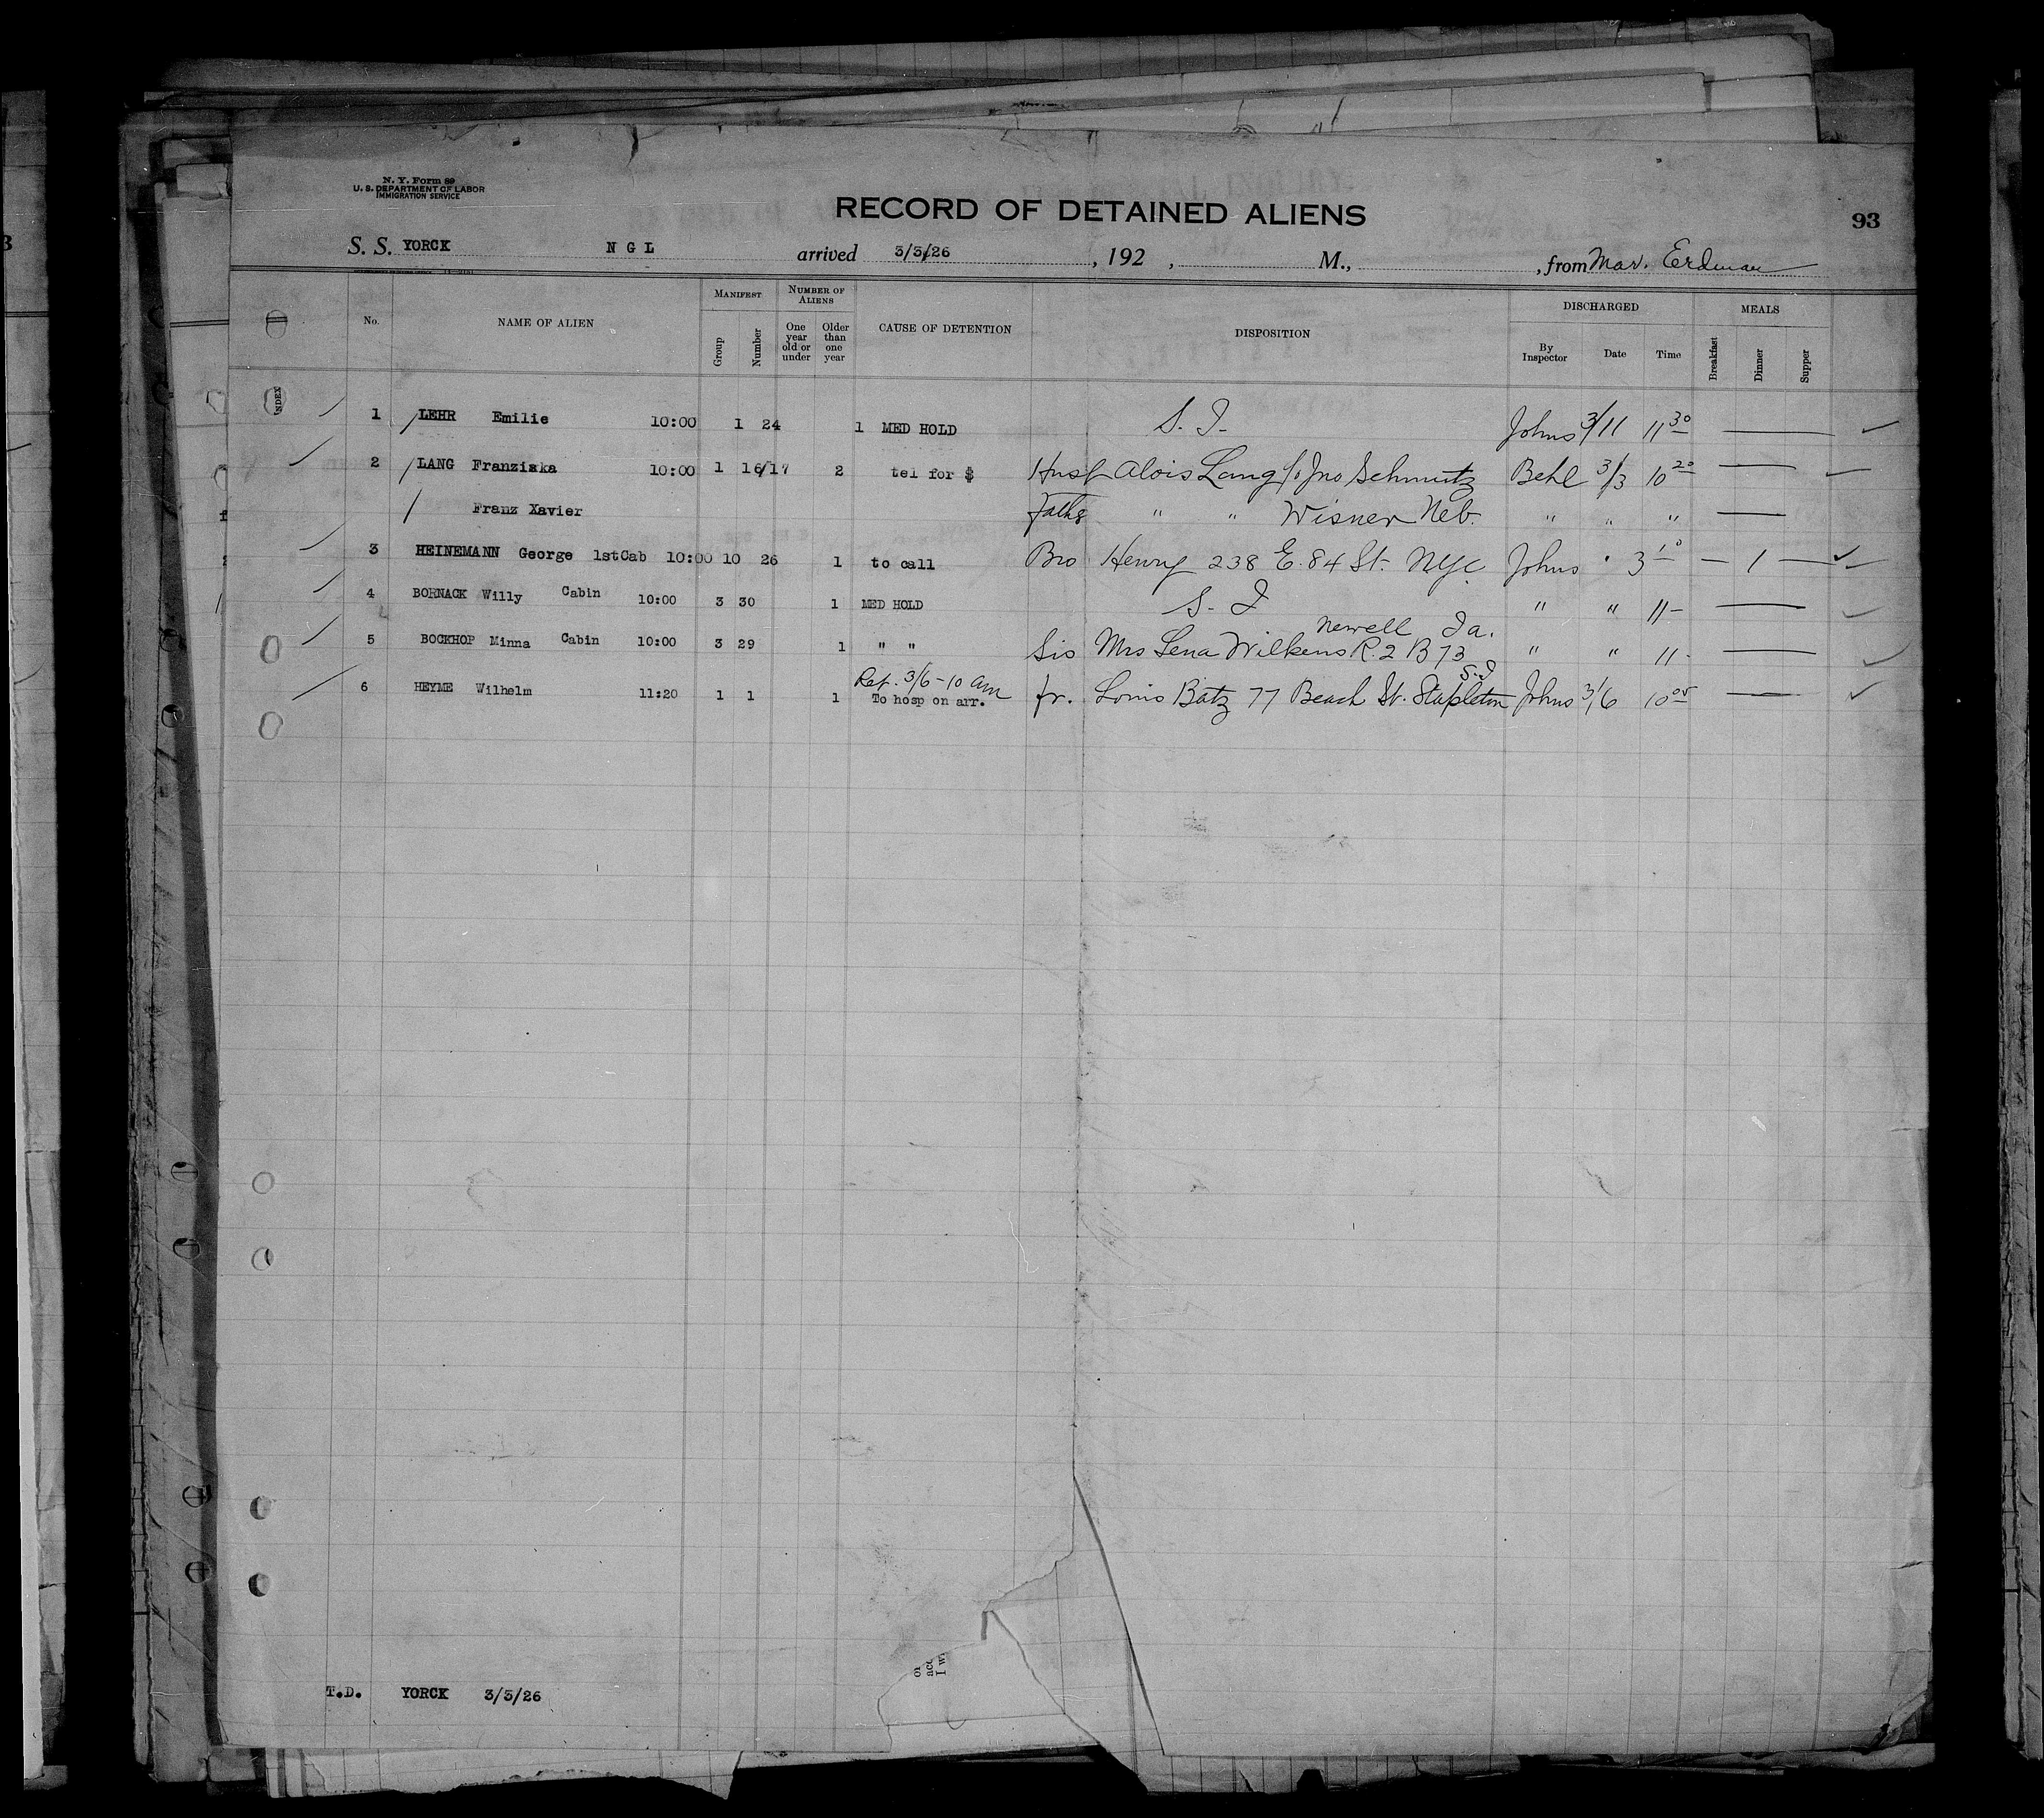 N. Y. Form 89
U. S. DEPARTMENT OF LABOR
IMMIGRATION SERVICE
RECORD OF DETAINED ALIENS
93
S. S. YORCK N G L arrived 3/3/26, 192 , M., , from Mar. Erdman
No. NAME OF ALIEN MANIFEST Group Number NUMBER OF ALIENS One year old or under Older than one year CAUSE OF DETENTION DISPOSITION DISCHARGED By Inspector Date Time MEALS Breakfast Dinner Supper
INDEX
1 LEHR Emilie 10:00 1 24 1 MED HOLD S. I. Johns 3/11 11 30
2 LANG Franziska 10:00 1 16/17 2 tel for $ Husb Alois Lang c/o Jno Schmutz Behl 3/3 10 20
Franz Xavier Fath " " Wisner Neb. " " "
3 HEINEMANN George 1stCab 10:00 10 26 1 to call Bro Henry 238 E. 84 St. NYC Johns " 3 10 1
4 BORNACK Willy Cabin 10:00 3 30 1 MED HOLD S. I " " 11-
Newell Ia.
5 BOCKHOP Minna Cabin 10:00 3 29 1 " " Sis Mrs Lena Wilkens R. 2 B 73 " " 11-
Ret. 3/6-10 am S.I
6 HEYME Wilhelm 11:20 1 1 1 To hosp on arr. fr. Louis Batz 77 Beach St. Stapleton Johns 3/6 10 05
T.D. YORCK 3/3/26